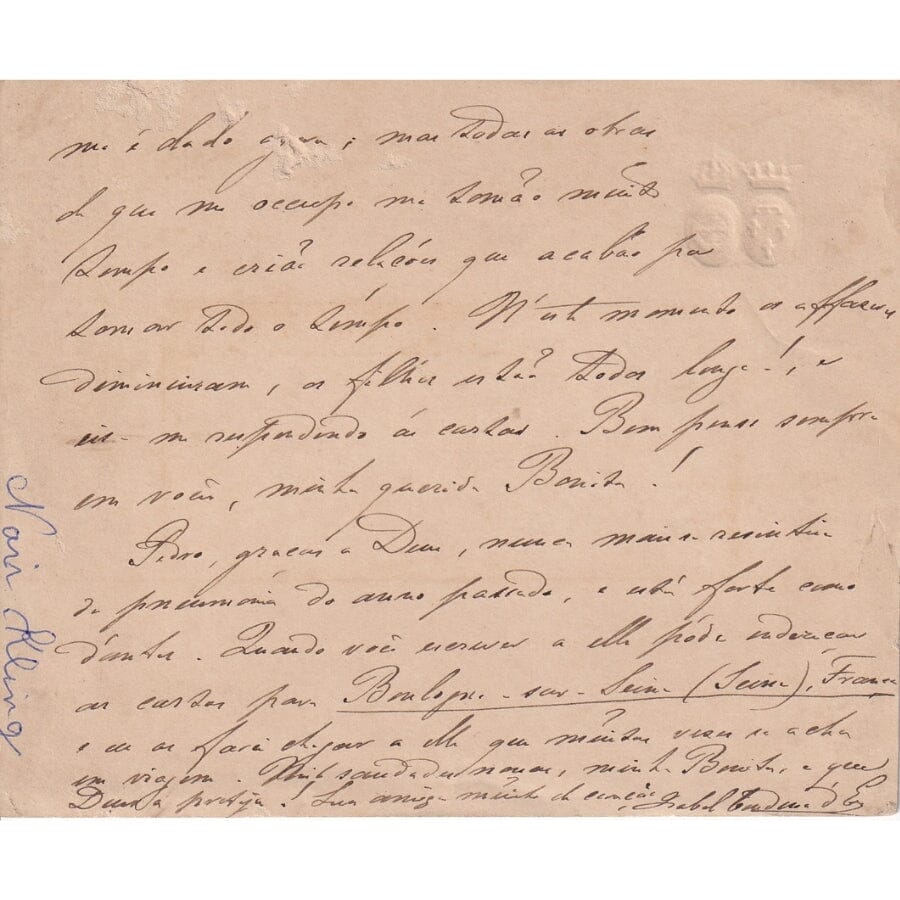 me é dado agora; mas todas as obras
de que me occupo me tomão muito
tempo e crião relações que acabão por
tomar todo o tempo. N'este momento os affazeres
diminuiram, os filhos estão todos longe!, e
eis-me respondendo ás cartas. Bem penso sempre
em você, minha querida Bonita!
Pedro, graças a Deus, nunca mais se resentiu
da pneumónia do anno passado, e está forte como
d'antes. Quando você escrever a elle póde endereçar
as cartas para Boulogne-sur-Seine (Seine), France
e eu as farei chegar a elle que muitas vezes se acha
em viagem. Mil saudades nossas, minha Bonita, e que
Deus a proteja! Sua amiga muito de coração, Isabel Condessa d'Eu
Nair Kling